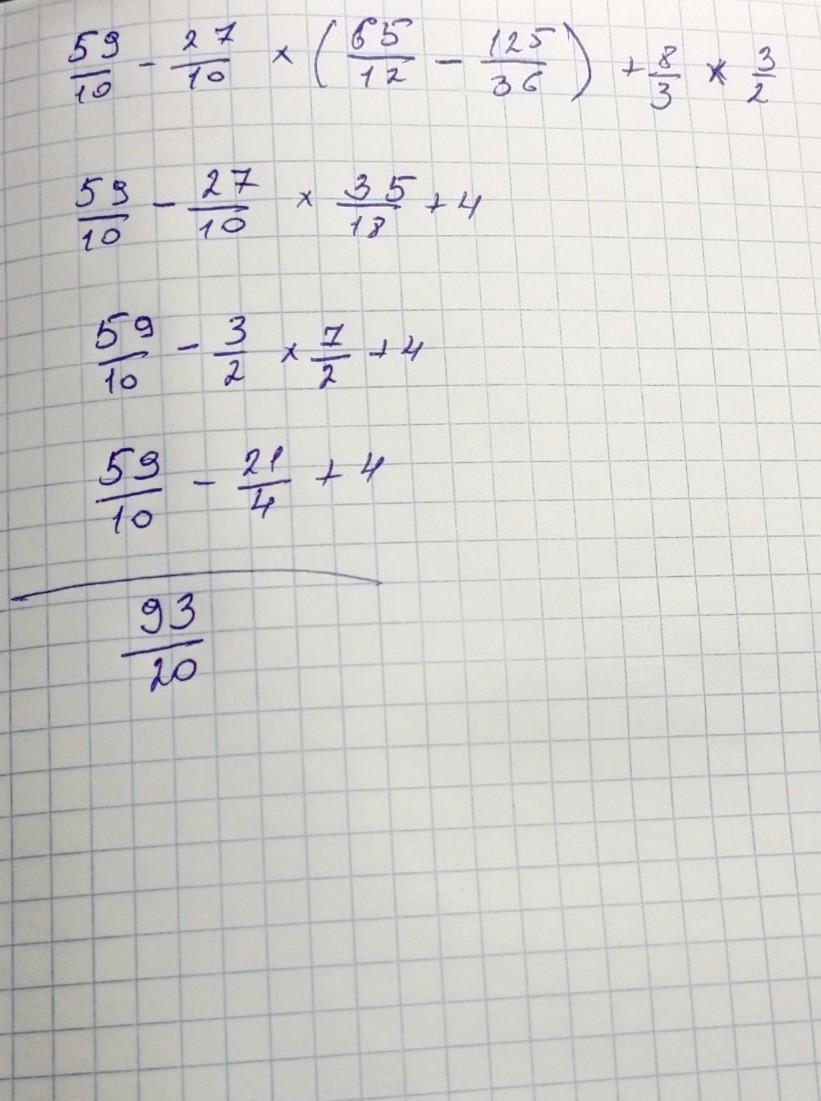 59/10 - 27/10 × (65/12 - 125/36) + 8/3 × 3/2
59/10 - 27/10 × 35/18 + 4
59/10 - 3/2 × 7/2 + 4
59/10 - 21/4 + 4
93/20